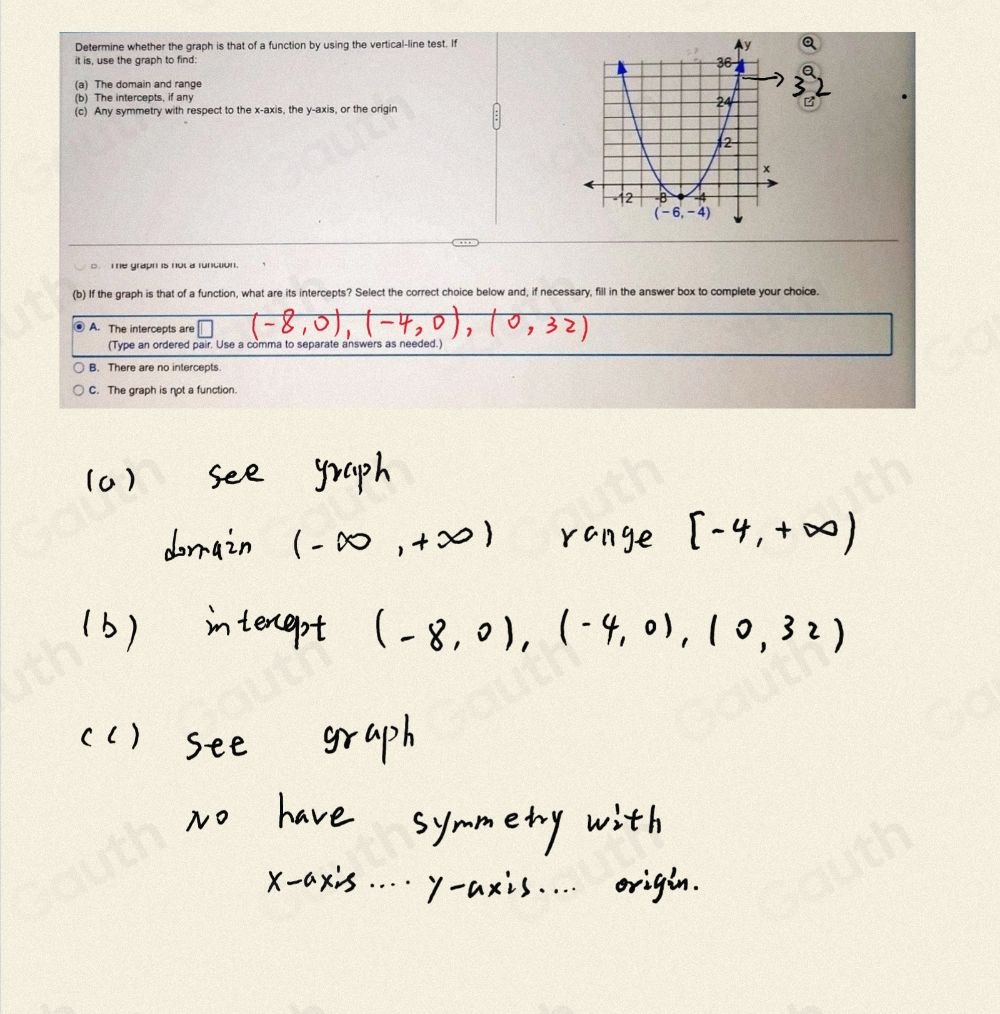 Determine whether the graph is that of a function by using the vertical-line test. If
it is, use the graph to find:
(a) The domain and range
(b) The intercepts, if any
(c) Any symmetry with respect to the x-axis, the y-axis, or the origin
y
36
32
24
12
x
-12 -8 -4
(-6,-4)
B. The graph is not a function.
(b) If the graph is that of a function, what are its intercepts? Select the correct choice below and, if necessary, fill in the answer box to complete your choice.
A. The intercepts are (-8,0), (-4,0), (0,32)
(Type an ordered pair. Use a comma to separate answers as needed.)
B. There are no intercepts.
C. The graph is not a function.
(a) see graph
domain (-∞,+∞) range [-4,+∞)
(b) intercept (-8,0), (-4,0), (0,32)
(c) see graph
No have symmetry with
x-axis .... y-axis .... origin.
Gauth